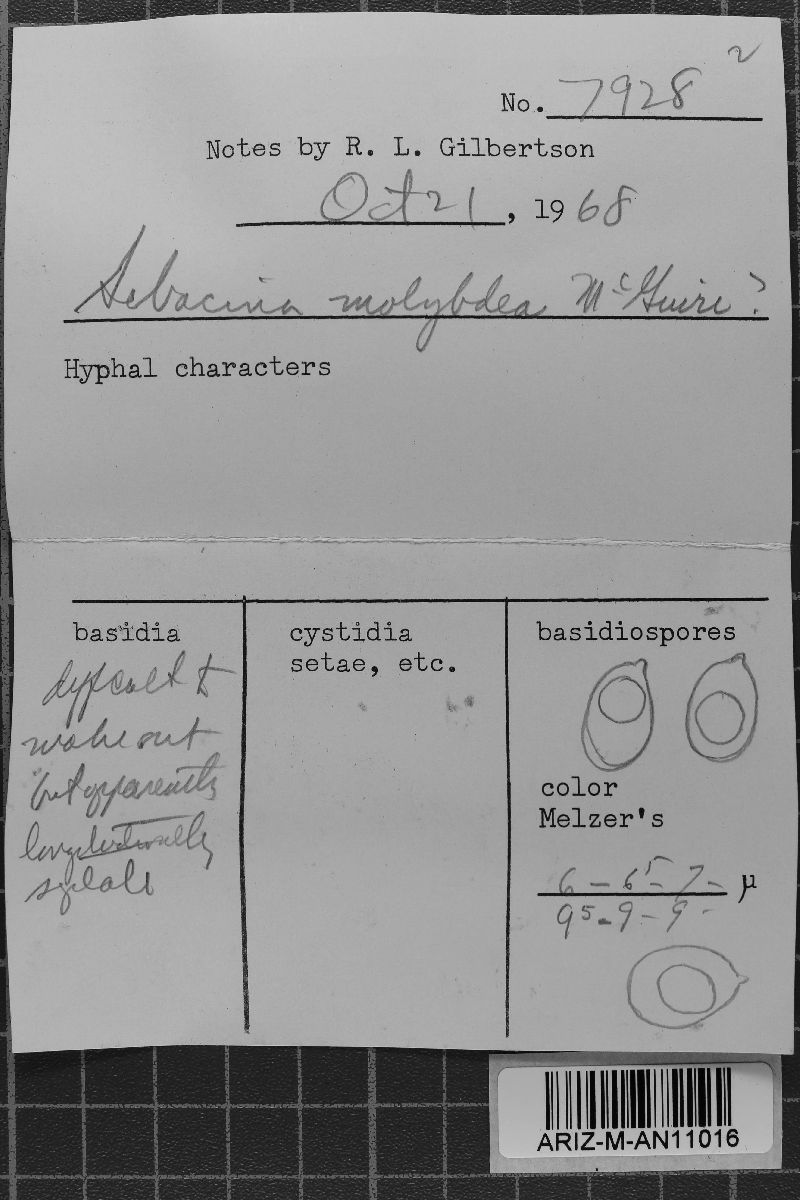 2
No. 7928
Notes by R. L. Gilbertson
Oct 21, 1968
Sebacina molybdea McGuire ?
Hyphal characters
basidia
difficult to
make out
but apparently
longitudinally
septate
cystidia
setae, etc.
basidiospores
color
Melzer's
6 - 6⁵ - 7 - µ
9⁵ - 9 - 9 -
ARIZ-M-AN11016